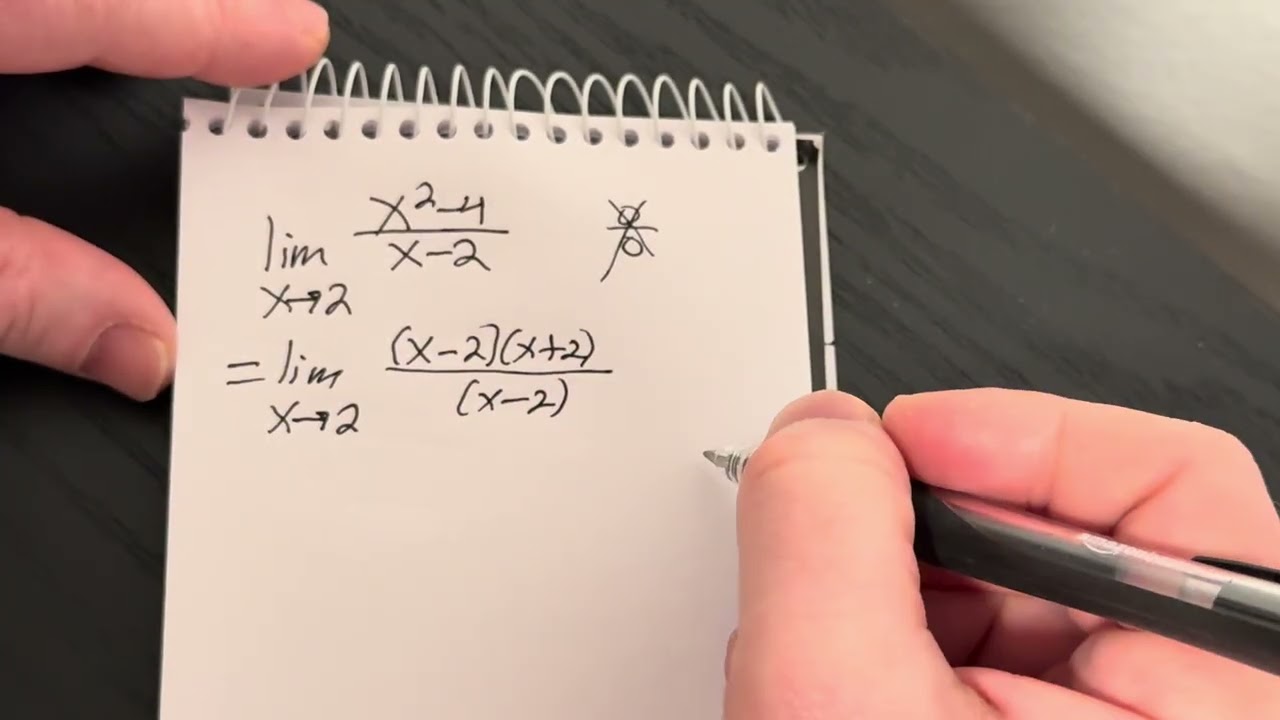 lim x→2 (x²-4)/(x-2) 0/0
= lim x→2 (x-2)(x+2)/(x-2)